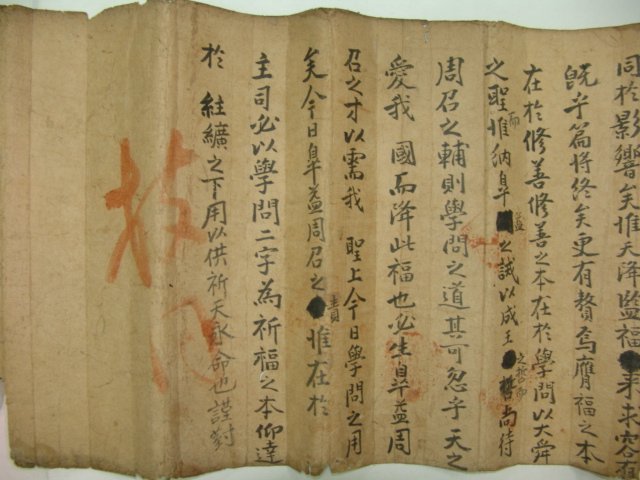 同於影響矣惟天降監福 來未容有
旣乎篇將終矣更有贅焉膺福之本
在於修善修善之本在於學問以大舜
之聖而惟納皐益之誠以成王之哲而尚待
周召之輔則學問之道其可忽乎天之
愛我 國而降此福也必生皐益周
召之才以需我 聖上今日學問之用
矣今日皐益周召之責惟在於
主司必以學問二字爲祈福之本仰達
於 紸纊之下用以供祈天永命也謹對